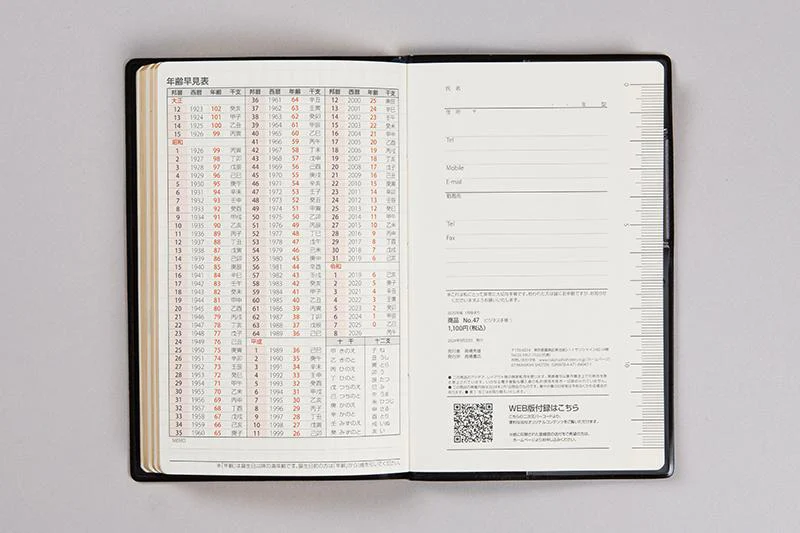 年齢早見表
邦暦 西暦 年齢 干支
大正
12 1923 102 癸亥
13 1924 101 甲子
14 1925 100 乙丑
15 1926 99 丙寅
昭和
1 1926 99 丙寅
2 1927 98 丁卯
3 1928 97 戊辰
4 1929 96 己巳
5 1930 95 庚午
6 1931 94 辛未
7 1932 93 壬申
8 1933 92 癸酉
9 1934 91 甲戌
10 1935 90 乙亥
11 1936 89 丙子
12 1937 88 丁丑
13 1938 87 戊寅
14 1939 86 己卯
15 1940 85 庚辰
16 1941 84 辛巳
17 1942 83 壬午
18 1943 82 癸未
19 1944 81 甲申
20 1945 80 乙酉
21 1946 79 丙戌
22 1947 78 丁亥
23 1948 77 戊子
24 1949 76 己丑
25 1950 75 庚寅
26 1951 74 辛卯
27 1952 73 壬辰
28 1953 72 癸巳
29 1954 71 甲午
30 1955 70 乙未
31 1956 69 丙申
32 1957 68 丁酉
33 1958 67 戊戌
34 1959 66 己亥
35 1960 65 庚子
邦暦 西暦 年齢 干支
36 1961 64 辛丑
37 1962 63 壬寅
38 1963 62 癸卯
39 1964 61 甲辰
40 1965 60 乙巳
41 1966 59 丙午
42 1967 58 丁未
43 1968 57 戊申
44 1969 56 己酉
45 1970 55 庚戌
46 1971 54 辛亥
47 1972 53 壬子
48 1973 52 癸丑
49 1974 51 甲寅
50 1975 50 乙卯
51 1976 49 丙辰
52 1977 48 丁巳
53 1978 47 戊午
54 1979 46 己未
55 1980 45 庚申
56 1981 44 辛酉
57 1982 43 壬戌
58 1983 42 癸亥
59 1984 41 甲子
60 1985 40 乙丑
61 1986 39 丙寅
62 1987 38 丁卯
63 1988 37 戊辰
64 1989 36 己巳
平成
1 1989 36 己巳
2 1990 35 庚午
3 1991 34 辛未
4 1992 33 壬申
5 1993 32 癸酉
6 1994 31 甲戌
7 1995 30 乙亥
8 1996 29 丙子
9 1997 28 丁丑
10 1998 27 戊寅
11 1999 26 己卯
邦暦 西暦 年齢 干支
12 2000 25 庚辰
13 2001 24 辛巳
14 2002 23 壬午
15 2003 22 癸未
16 2004 21 甲申
17 2005 20 乙酉
18 2006 19 丙戌
19 2007 18 丁亥
20 2008 17 戊子
21 2009 16 己丑
22 2010 15 庚寅
23 2011 14 辛卯
24 2012 13 壬辰
25 2013 12 癸巳
26 2014 11 甲午
27 2015 10 乙未
28 2016 9 丙申
29 2017 8 丁酉
30 2018 7 戊戌
31 2019 6 己亥
令和
1 2019 6 己亥
2 2020 5 庚子
3 2021 4 辛丑
4 2022 3 壬寅
5 2023 2 癸卯
6 2024 1 甲辰
7 2025 0 乙巳
8 2026 丙午
十干 十二支
甲 きのえ 子 ね
乙 きのと 丑 うし
丙 ひのえ 寅 とら
丁 ひのと 卯 う
戊 つちのえ 辰 たつ
己 つちのと 巳 み
庚 かのえ 午 うま
辛 かのと 未 ひつじ
壬 みずのえ 申 さる
癸 みずのと 酉 とり
戌 いぬ
亥 い
MEMO
※「年齢」は誕生日以降の満年齢です。誕生日前の方は「年齢」から1歳を引いてください。
氏名
年 記
住所 〒
Tel
Mobile
E-mail
勤務先
Tel
Fax
0
5
10
2025年 1月始まり
商品 No.47 ビジネス手帳
1,100円(税込)
発行者 高橋秀雄
発行所 高橋書店
WEB版付録はこちら
こちらの二次元バーコードより、
便利なオリジナルコンテンツをご覧いただけます。
ホームページよりお申し込みください。